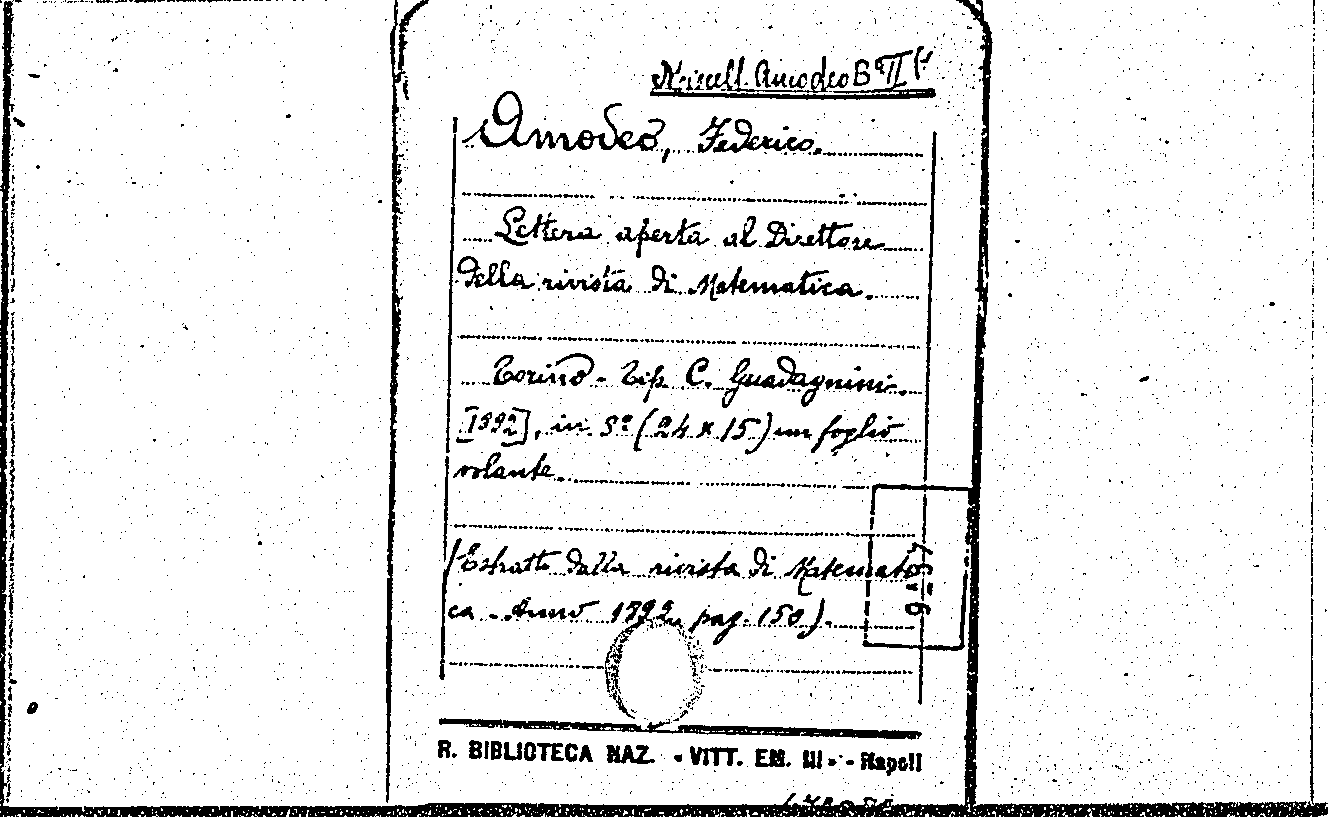 Miscell. Amodeo B
Amodeo, Federico.
Lettera aperta al Direttore
della rivista di Matematica.
Torino - Tip. C. Guadagnini.
[1892], in 8º (24 x 15) un foglio
volante.
(Estratto dalla rivista di Matemati
ca - Anno 1892 pag. 150).
R. BIBLIOTECA NAZ. - VITT. EM. III - Napoli